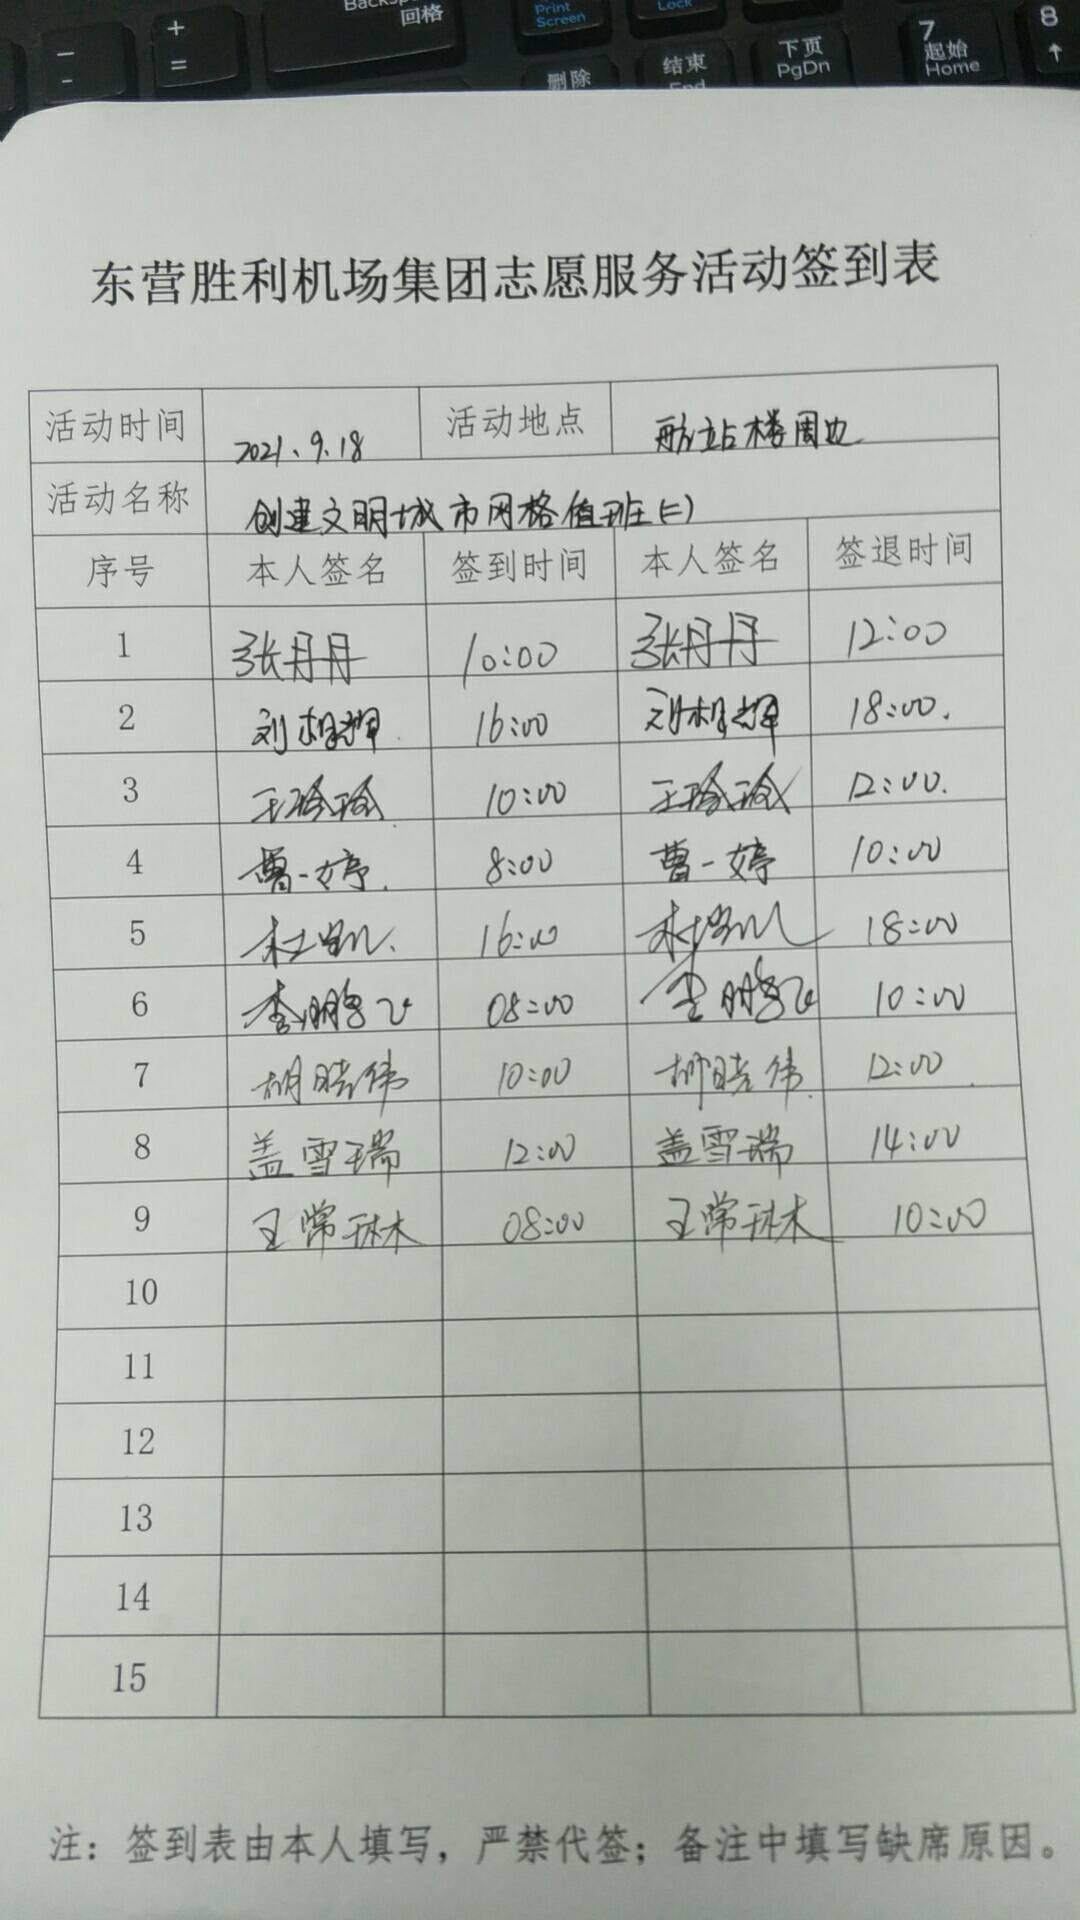 回格
Print
Screen
Lock
+
=
-
-
删除
结束
End
下页
PgDn
7
起始
Home
8
↑
东营胜利机场集团志愿服务活动签到表
活动时间 2021.9.18 活动地点 航站楼周边
活动名称 创建文明城市网格值班(二)
序号 本人签名 签到时间 本人签名 签退时间
1 张丹丹 10:00 张丹丹 12:00
2 刘相辉 16:00 刘相辉 18:00.
3 王玲玲 10:00 王玲玲 12:00.
4 曹一婷. 8:00 曹一婷 10:00
5 16:00 18:00
6 李鹏飞 08:00 李鹏飞 10:00
7 胡晓伟 10:00 胡晓伟 12:00
8 盖雪瑞 12:00 盖雪瑞 14:00
9 王常琳 08:00 王常琳 10:00
10
11
12
13
14
15
注：签到表由本人填写，严禁代签；备注中填写缺席原因。